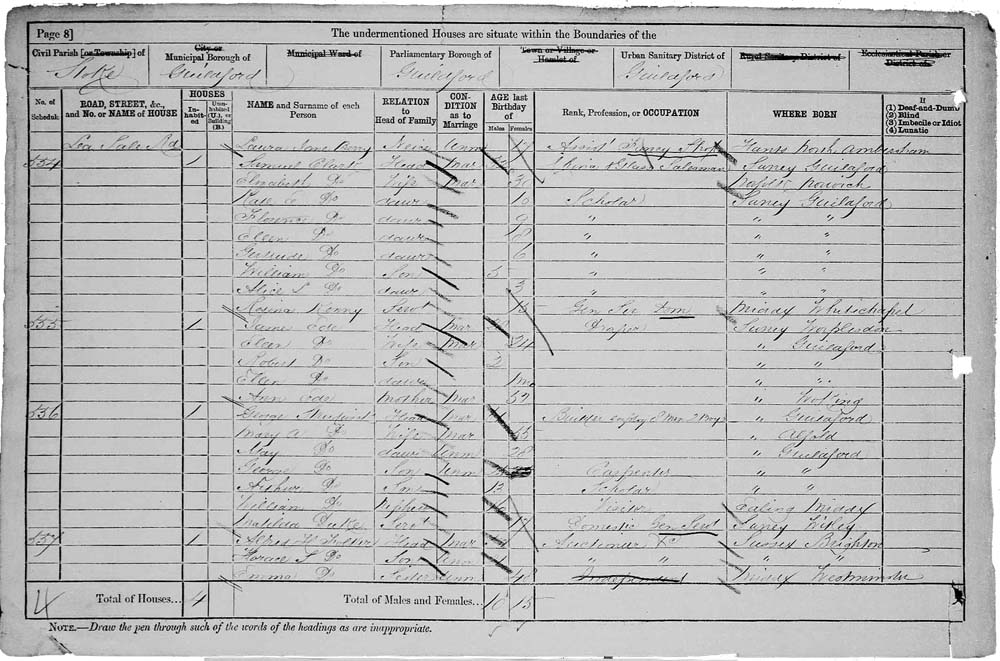 Page 8] The undermentioned Houses are situate within the Boundaries of the
Civil Parish [or Township] of City or Municipal Borough of Municipal Ward of Parliamentary Borough of Town or Village or Hamlet of Urban Sanitary District of Rural Sanitary District of Ecclesiastical Parish or District of
Stoke Guildford Guildford Guildford
No. of Schedule ROAD, STREET, &c., and No. or NAME of HOUSE HOUSES Inhabited Uninhabited (U.), or Building (B.) NAME and Surname of each Person RELATION to Head of Family CONDITION as to Marriage AGE last Birthday of Males Females Rank, Profession, or OCCUPATION WHERE BORN If (1) Deaf-and-Dumb (2) Blind (3) Imbecile or Idiot (4) Lunatic
Lea Pale Rd Laura Berry Niece Unm 17 Assist Fancy Hants North
534 1 Samuel Head Mar China & Glass Salesman Surrey Guildford
Elizabeth Do Wife Mar 30 Norfolk Norwich
Kate Do daur 10 Scholar Surrey Guildford
Florence Do daur 9 " " "
Ellen Do daur 8 " " "
Gertrude Do daur 6 " " "
William Do Son 5 " " "
Alice S Do daur 3 " " "
Rosina Servt 15 Gen Ser Dom Middx Whitechapel
535 1 Head Mar Draper Surrey Worplesdon
Ellen Do Wife Mar 24 " Guildford
Robert Do Son 2 " "
Ellen Do daur " "
Ann Mother Mar 52 " Woking
536 1 George Head Mar Builder 2 Boys " Guildford
Mary A Do Wife Mar " Alfold
May Do daur Unm 28 " Guildford
George Do Son Unm Carpenter " "
Arthur Do Son 13 Scholar " "
William Do Nephew Visitor Ealing Middx
Matilda Duke Servt 17 Domestic Gen Servt Surrey Witley
537 1 Head Mar Auctioneer &c Sussex Brighton
Horace S Do Son Unm " " " "
Emma Do Sister Unm 48 Independent Middx Westminster
4 Total of Houses... 4 Total of Males and Females... 10 15
NOTE.—Draw the pen through such of the words of the headings as are inappropriate.